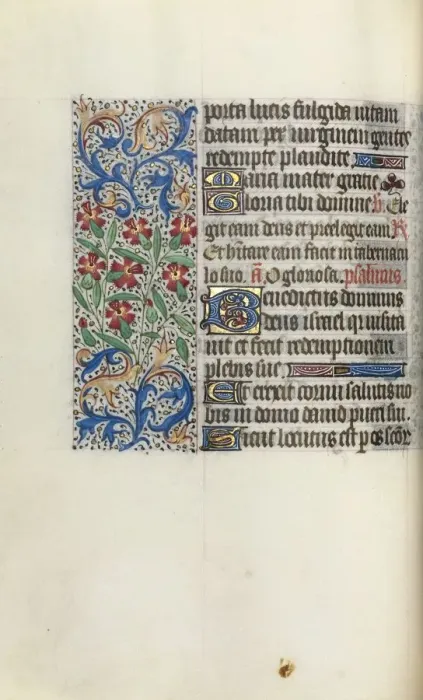 porta lucis fulgida vitam
datam per virginem gentes
redempte plaudite
Maria mater gratie
Gloria tibi domine v. Ele
git eam deus et preelegit eam R.
Et habitare eam facit in tabernacu
lo suo. a. O gloriosa. psalmus.
Benedictus dominus
deus israel qui visita
vit et fecit redemptionem
plebis sue
Et erexit cornu salutis no
bis in domo david pueri sui.
Sicut locutus est p os scor